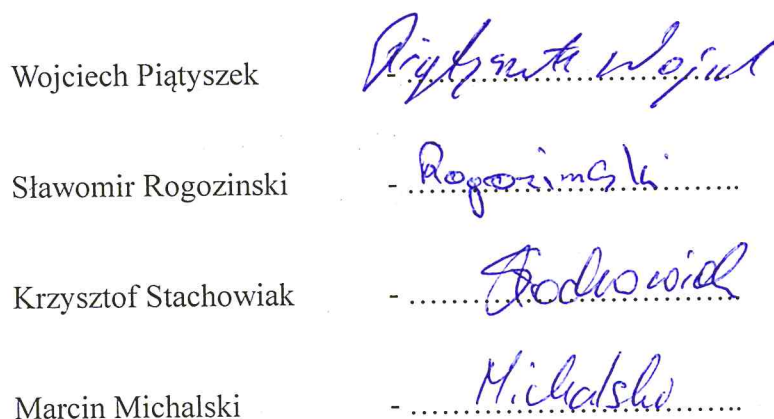 Wojciech Piątyszek - Piątyszek Wojciech
Sławomir Rogozinski - Rogozinski
Krzysztof Stachowiak - Stachowiak
Marcin Michalski - Michalski